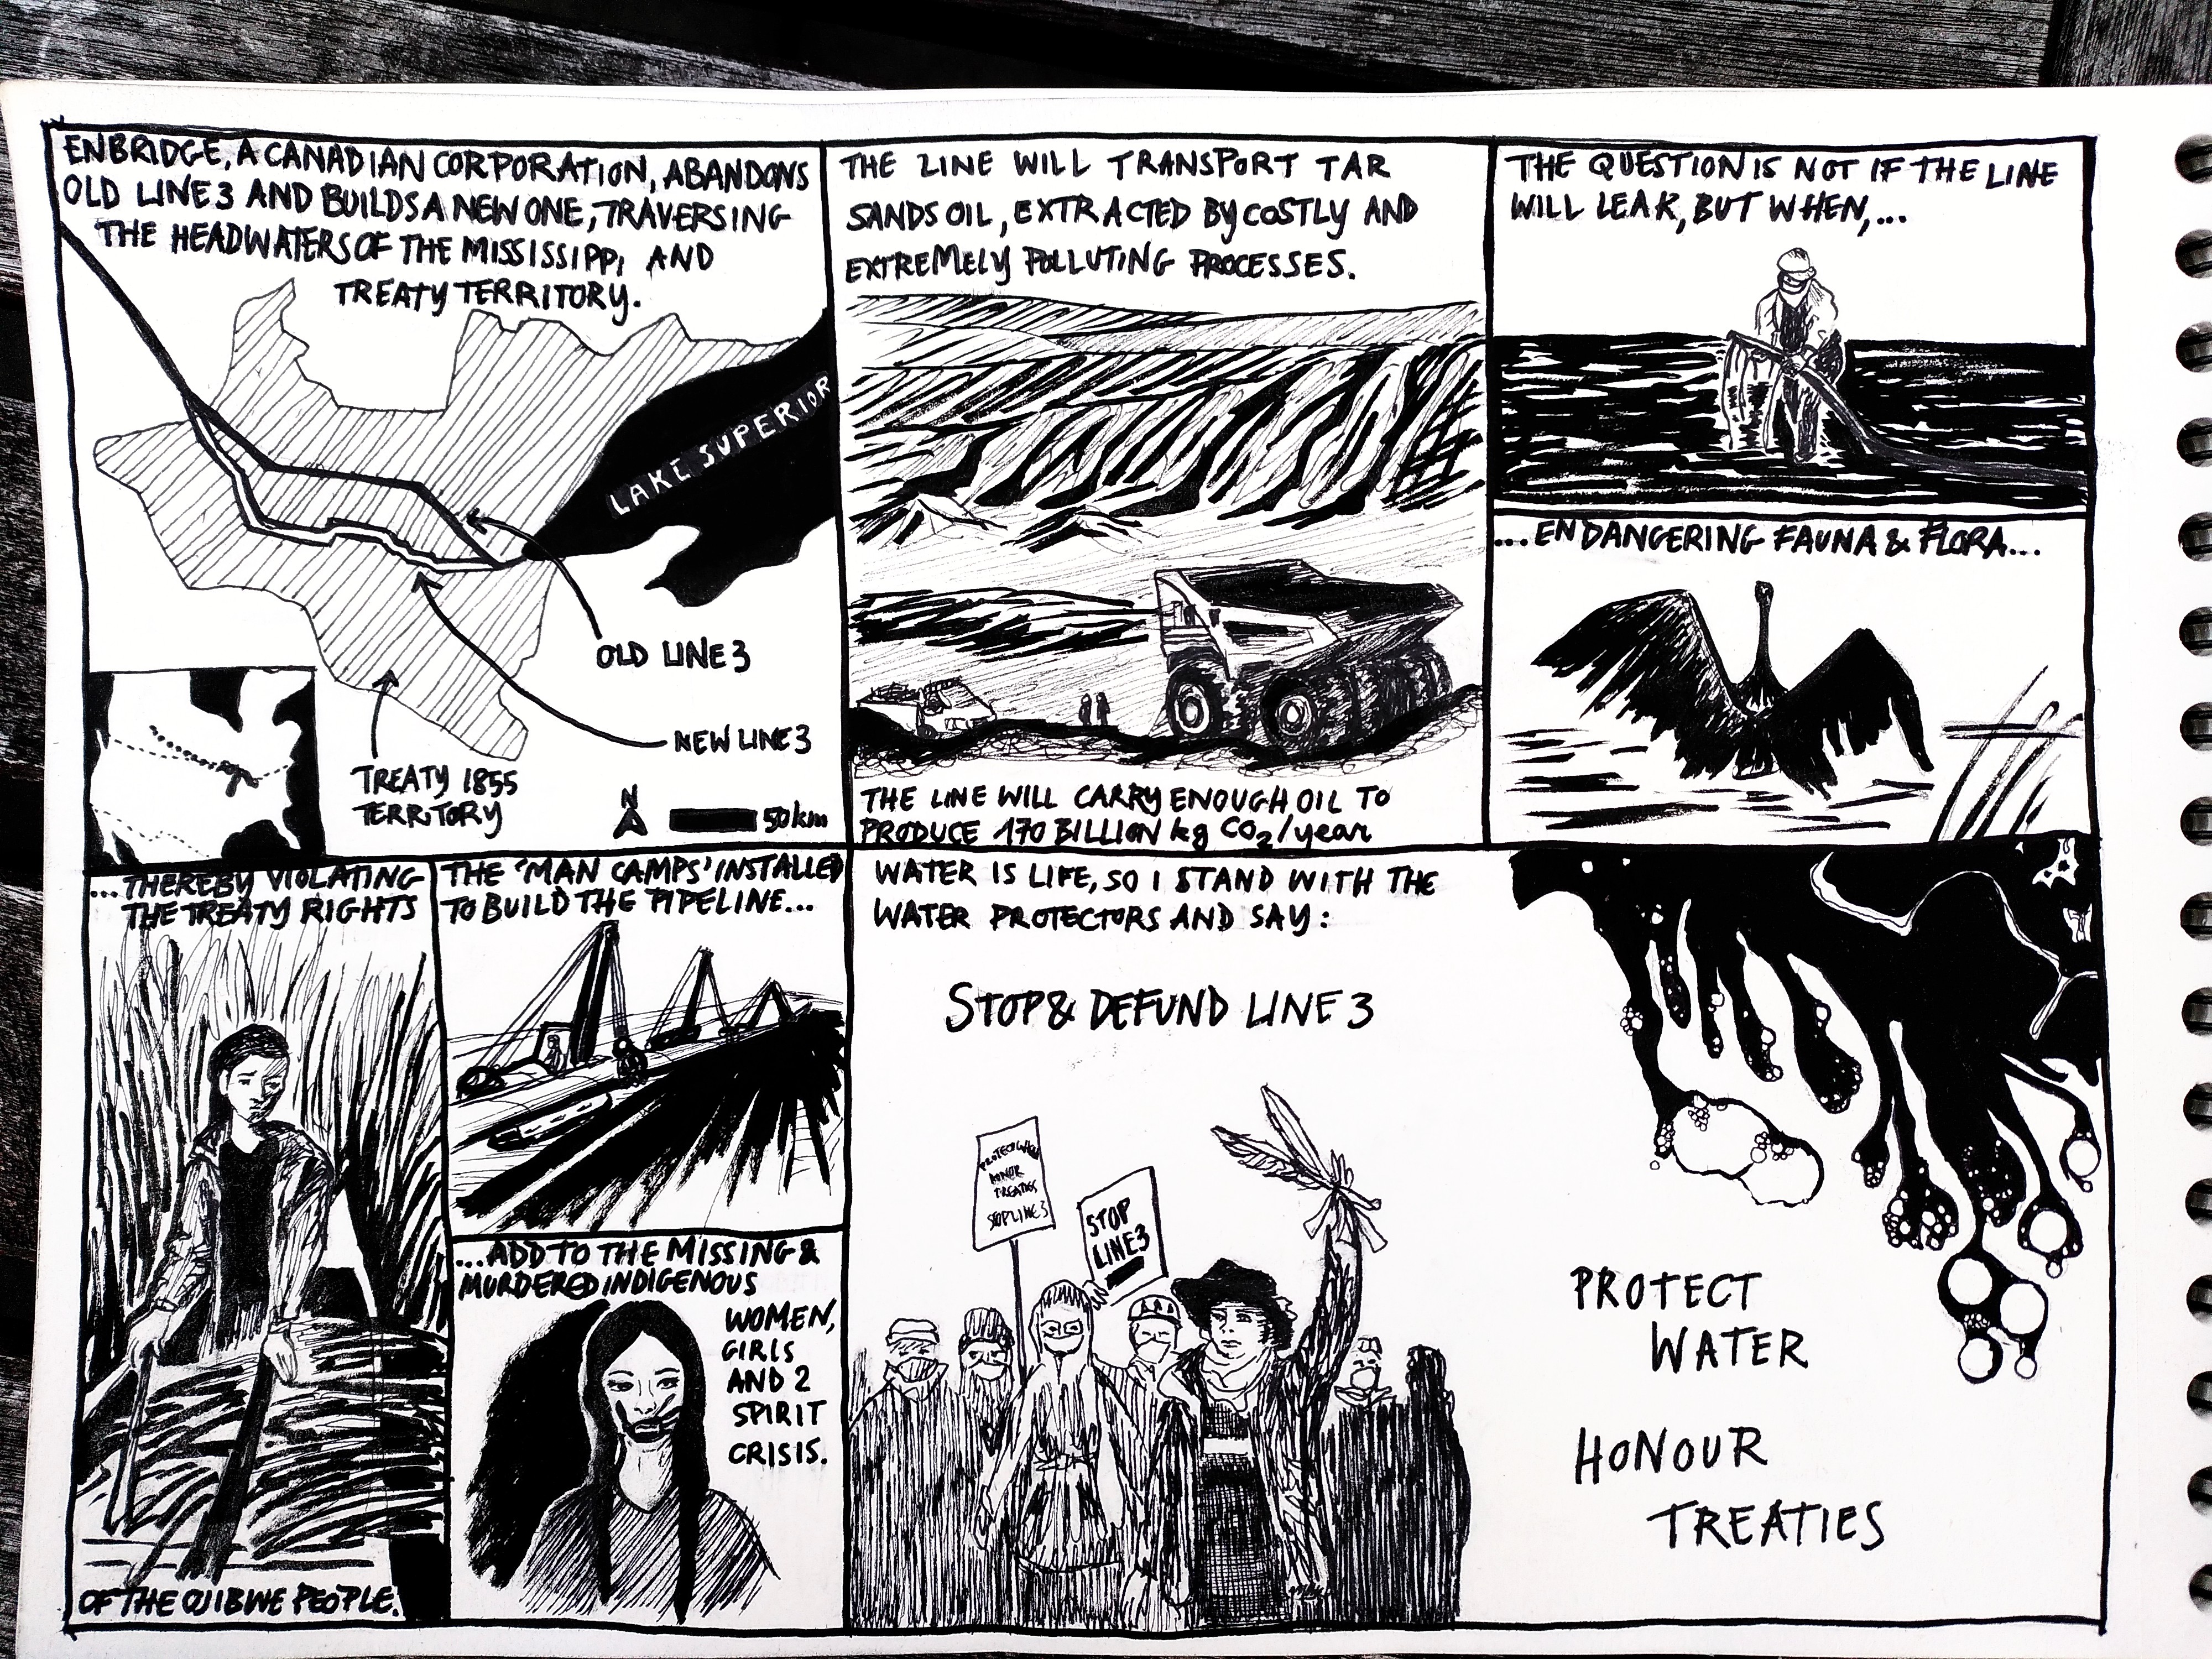 ENBRIDGE, A CANADIAN CORPORATION, ABANDONS
OLD LINE 3 AND BUILDS A NEW ONE, TRAVERSING
THE HEADWATERS OF THE MISSISSIPPI AND
TREATY TERRITORY.
LAKE SUPERIOR
OLD LINE 3
NEW LINE 3
TREATY 1855
TERRITORY
N
50 km
THE LINE WILL TRANSPORT TAR
SANDS OIL, EXTRACTED BY COSTLY AND
EXTREMELY POLLUTING PROCESSES.
THE LINE WILL CARRY ENOUGH OIL TO
PRODUCE 170 BILLION kg CO2/year
THE QUESTION IS NOT IF THE LINE
WILL LEAK, BUT WHEN,...
...ENDANGERING FAUNA & FLORA...
...THEREBY VIOLATING
THE TREATY RIGHTS
OF THE OJIBWE PEOPLE.
THE 'MAN CAMPS' INSTALLED
TO BUILD THE PIPELINE...
...ADD TO THE MISSING &
MURDERED INDIGENOUS
WOMEN,
GIRLS
AND 2
SPIRIT
CRISIS.
WATER IS LIFE, SO I STAND WITH THE
WATER PROTECTORS AND SAY:
STOP & DEFUND LINE 3
TREATIES
STOP LINE 3
STOP
LINE 3
PROTECT
WATER
HONOUR
TREATIES